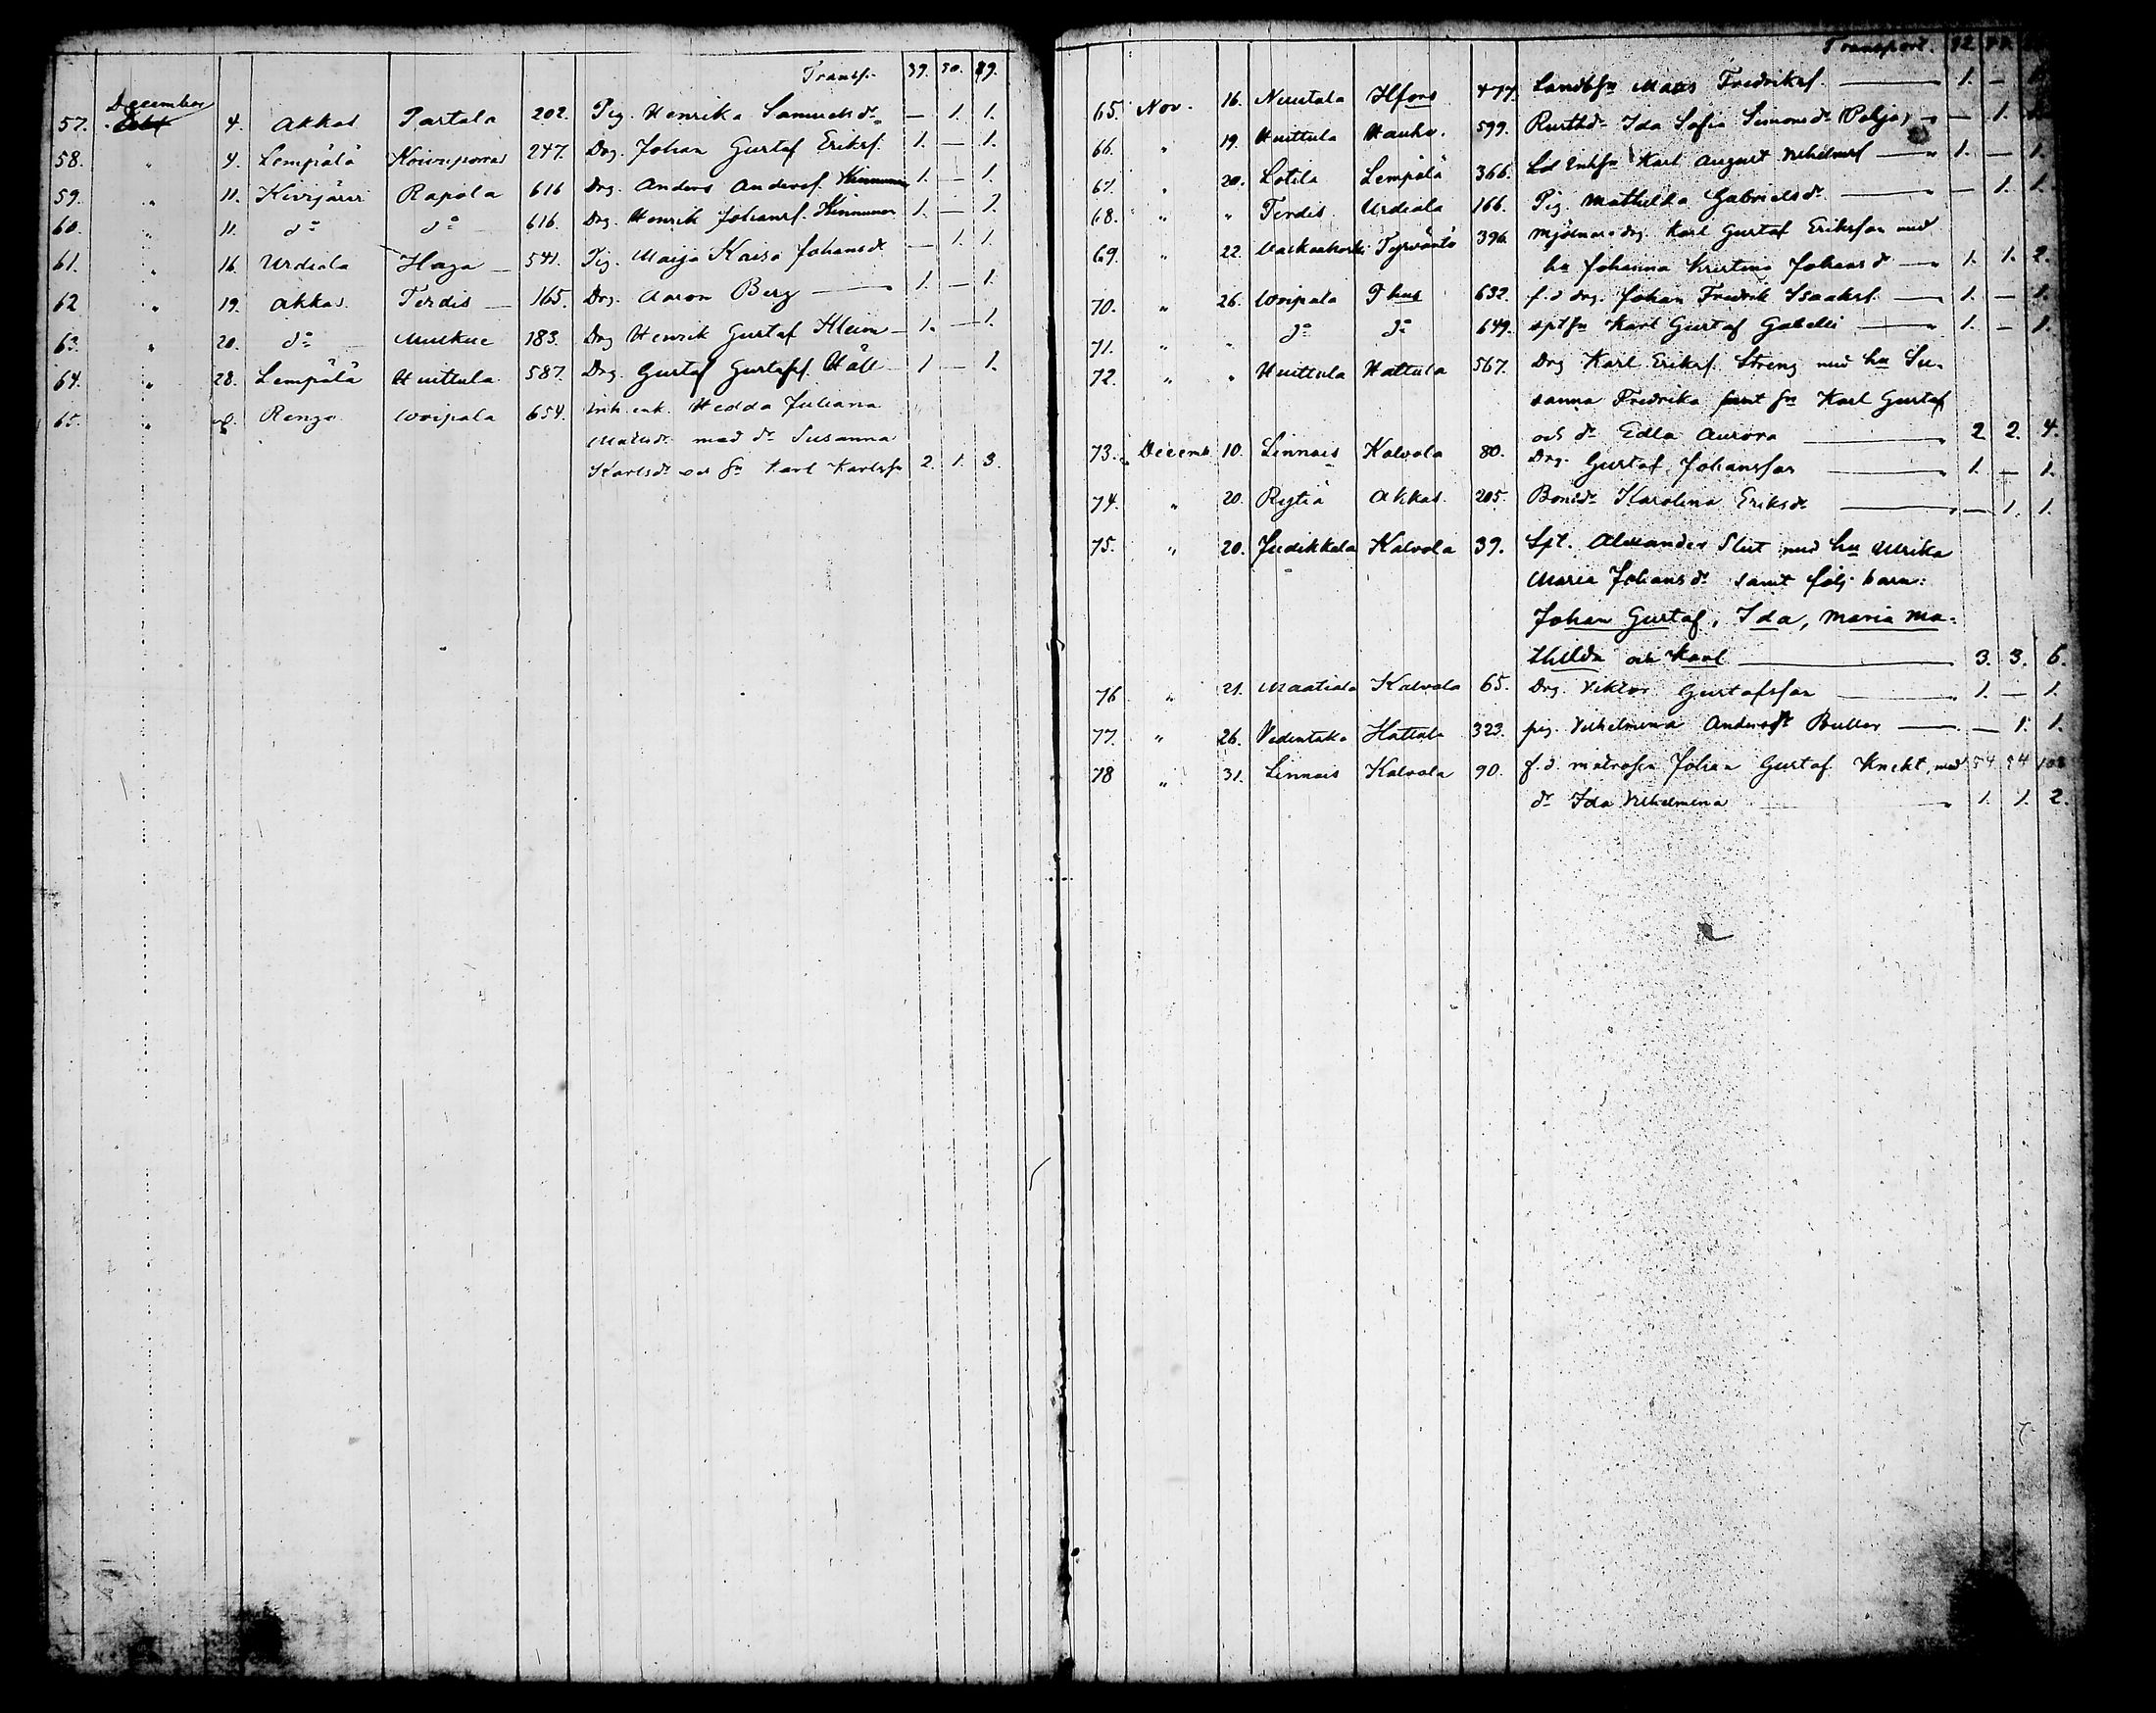 Transp. 39. 50. 89.
December
57. 4. Akkas Partala 202. Pig. Henrika Samuelsdr — 1. 1.
58. " 4. Lempälä 247. Drg. Johan Gustaf Eriksf. 1. — 1.
59. " 11. Kivijärvi Rapola 616 Drg. Anders Andersf. Kinnunen 1. — 1.
60. " 11. do do 616. Drg. Henrik Johansf. Kinnunen 1. — 1.
61. " 16. Urdiala Haga — 541. Pig. Maija Kaisa Johansdr — 1. 1.
62 " 19. Akkas Terdis — 165. Drg. Aaron Berg — 1. — 1.
63. " 20. do 183. Drg Henrik Gustaf Kleim — 1. — 1.
64. " 28. Lempälä Huittula 587. Drg. Gustaf Gustafsf. Häll 1 — 1.
65. " Rengo Woipala 654. Inh. enk. Hedda Juliana
Matsdr med dr Susanna
Karlsdr och sn Karl Karlsson 2. 1. 3.
Transport.
65. Nov. 16. Nuutala Hfors 477. Landbsn Matts Fredriksf. — 1. —
66. " 19. Huittula Hauho. 599. Rusthdr Ida Sofia Simonsdr (Pohja) — 1.
67. " 20. Lotila Lempälä 366. Karl August Vilhelmsf — 1. — 1.
68. " " Terdis Urdiala 166. Pig. Mathilda Gabrielsdr — 1. 1.
69. " 22. Walkiakoski Tyrväntö 396. Mjölnaredrg. Karl Gustaf Eriksson med
hu Johanna Kristina Johansdr — 1. 1. 2.
70. " 26. Woipala Thus 632. f. d drg. Johan Fredrik Isaaksf. — 1. — 1.
71. " " do do 649. sptsn Karl Gustaf — 1. — 1.
72. " " Huittula Hattula 567. Drg Karl Eriksf. Streng med hu Su-
sanna Fredrika samt sn Karl Gustaf
och dr Edla Aurora — 2 2. 4.
73. Decemb. 10. Linnais Kalvola 80. Drg. Gustaf Johansson — 1. — 1.
74. " 20. Rytiä Akkas. 205. Bondr Karolina Eriksdr — 1. 1.
75. " 20. Judikkala Kalvola 39. Spt. Alexander Slut med hu Ulrika
Maria Johansdr samt följ. barn:
Johan Gustaf, Ida, Maria Ma-
thilda och Karl — 3. 3. 6.
76 " 21. Maatiala Kalvola 65. Drg. Viktor Gustafsson — 1. — 1.
77. " 26. Vedentaka Hattula 323. pig. Vilhelmina Andersdr Buller — — 1. 1.
78 " 31. Linnais Kalvola 90. f. d. matrosen Johan Gustaf Knekt, med 54 54 108
dr Ida Vilhelmina — 1. 1. 2.